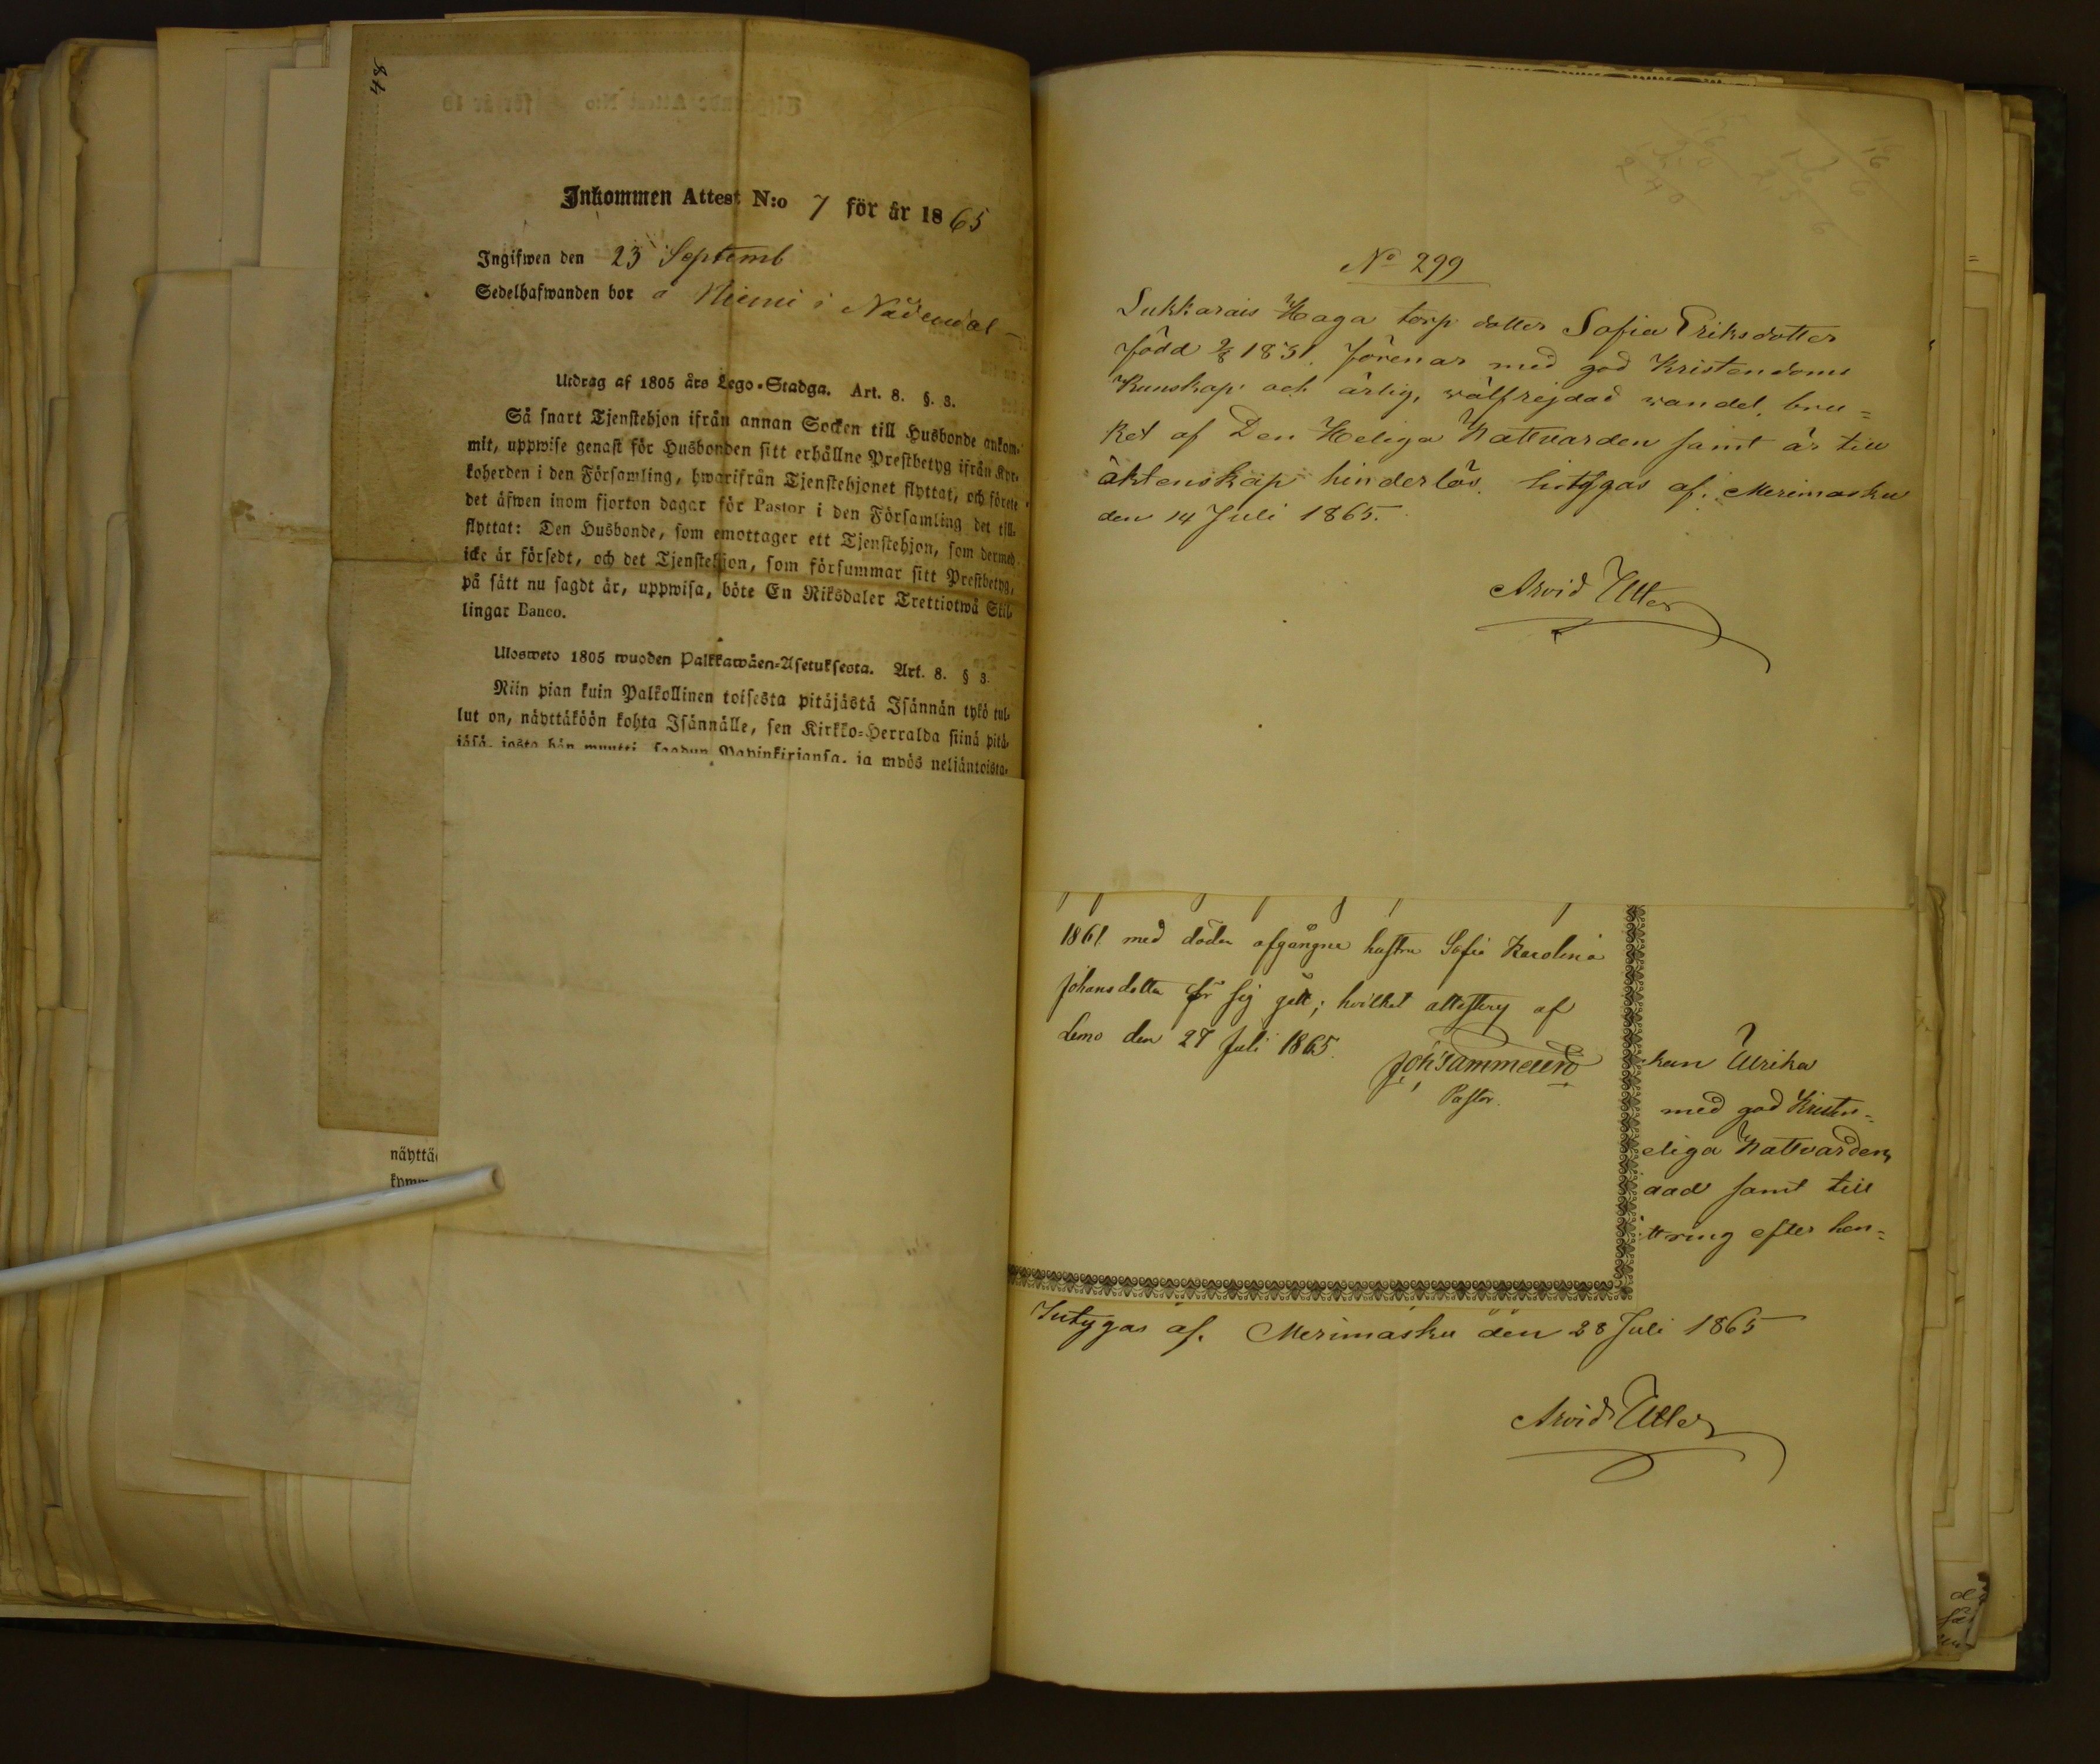 84
Inkommen Attest N:o 7 för år 1865
Ingifwen den 23 Septemb
Sedelhafwanden bor å Niemi i Nådendal
Utdrag af 1805 års Lego-Stadga. Art. 8. §. 3.
Så snart Tjenstehjon ifrån annan Socken till Husbonde ankom-
mit, uppwise genast för Husbonden sitt erhållne Prestbetyg ifrån Kyr-
koherden i den Församling, hwarifrån Tjenstehjonet flyttat, och förete
det äfwen inom fjorton dagar för Pastor i den Församling det till-
flyttat: Den Husbonde, som emottager ett Tjenstehjon, som dermed
icke är försedt, och det Tjenstehjon, som försummar sitt Prestbetyg,
på sätt nu sagdt är, uppwisa, böte En Riksdaler Trettiotwå Skil-
lingar Banco.
Ulosweto 1805 wuoden Palkkawäen-Asetuksesta. Art. 8. § 3.
Niin pian kuin Palkollinen toisesta pitäjästä Isännän tykö tul-
lut on, näyttäköön kohta Isännälle, sen Kirkko-Herralda siinä pitä-
jäsä, josta hän muutti, saadun Papinkirjansa, ja myös neljäntoista-
näyttä
kymm
No 299
Sukkarais Haga torp dotter Sofia Eriksdotter
född 2/8 1831. förenar med god Kristendoms
Kunskap och ärlig, wälfrejdad wandel, bru=
ket af Den Heliga Nattvarden samt är till
äktenskap hinderlös. Intygas af. Merimasku
den 14 Juli 1865.
Arvid Utter
1861 med döden afgångne hustru Sofia Karolina
Johansdotter för sig gått; hvilket att af
Lemo den 27 Juli 1865.
Pastor.
kan Ulrika
med god Kristen=
eliga Nattvarden,
aad samt till
ttring efter hen=
Intygas af. Merimasku den 28 Juli 1865
Arvid Utter